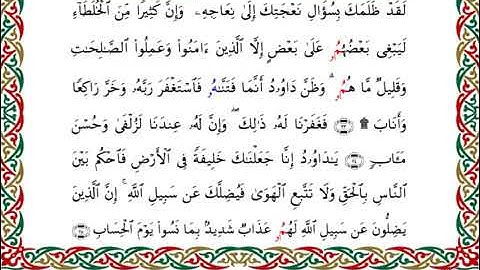 لَقَدْ ظَلَمَكَ بِسُؤَالِ نَعْجَتِكَ إِلَىٰ نِعَاجِهِۦ ۖ وَإِنَّ كَثِيرًا مِّنَ ٱلْخُلَطَآءِ
لَيَبْغِى بَعْضُهُمُۥ عَلَىٰ بَعْضٍ إِلَّا ٱلَّذِينَ ءَامَنُوا۟ وَعَمِلُوا۟ ٱلصَّـٰلِحَـٰتِ
وَقَلِيلٌ مَّا هُمُۥ ۗ وَظَنَّ دَاوُۥدُ أَنَّمَا فَتَنَّـٰهُۥ فَٱسْتَغْفَرَ رَبَّهُۥ وَخَرَّ رَاكِعًا
وَأَنَابَ ۩ فَغَفَرْنَا لَهُۥ ذَٰلِكَ ۖ وَإِنَّ لَهُۥ عِندَنَا لَزُلْفَىٰ وَحُسْنَ
مَـَٔابٍ يَـٰدَاوُۥدُ إِنَّا جَعَلْنَـٰكَ خَلِيفَةً فِى ٱلْأَرْضِ فَٱحْكُم بَيْنَ
ٱلنَّاسِ بِٱلْحَقِّ وَلَا تَتَّبِعِ ٱلْهَوَىٰ فَيُضِلَّكَ عَن سَبِيلِ ٱللَّهِ ۚ إِنَّ ٱلَّذِينَ
يَضِلُّونَ عَن سَبِيلِ ٱللَّهِ لَهُمُۥ عَذَابٌ شَدِيدٌۢ بِمَا نَسُوا۟ يَوْمَ ٱلْحِسَابِ